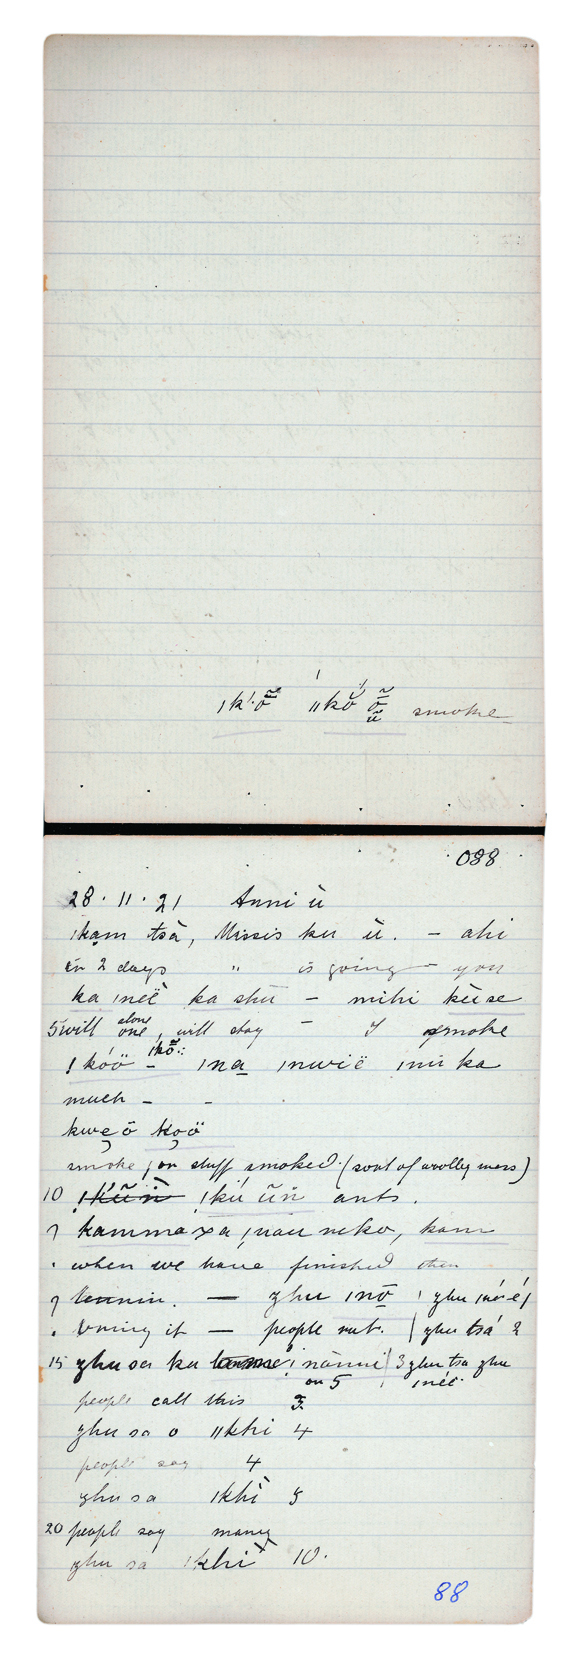 ǀk!õ ǁkŏ õ ũ smoke
088
28. 11. 21 Anni ù
ǀkam tsà, Missis ku ù. – ahi
in 2 days " is going – you
ka ǀnëë ka shu – mihi kuse
5 will alone one, will stay – I smoke
ǃkóö – ǀkõ: ǀna ǀnwië ǀnù ka
much – -
kwe õ kǫö
smoke, or stuff smoked. (sort of wolly mess)
10 ǃkú ũn ants.
? kammaxa ǀnau neko, kam
when we have finished then
? – zhu ǀnō ǀ zhu ǀnéé ǀ
bring it – people nut. zhu tsá 2
15 zhu sa ka ǀnànni 3 zhu tsa zhu
or 5 ǀnëë
people call this 3.
zhu sa o ǁkhi 4
people say 4
zhu sa ǀkhì 5
20 people say many
zhu sa ǀkhi 10.
88